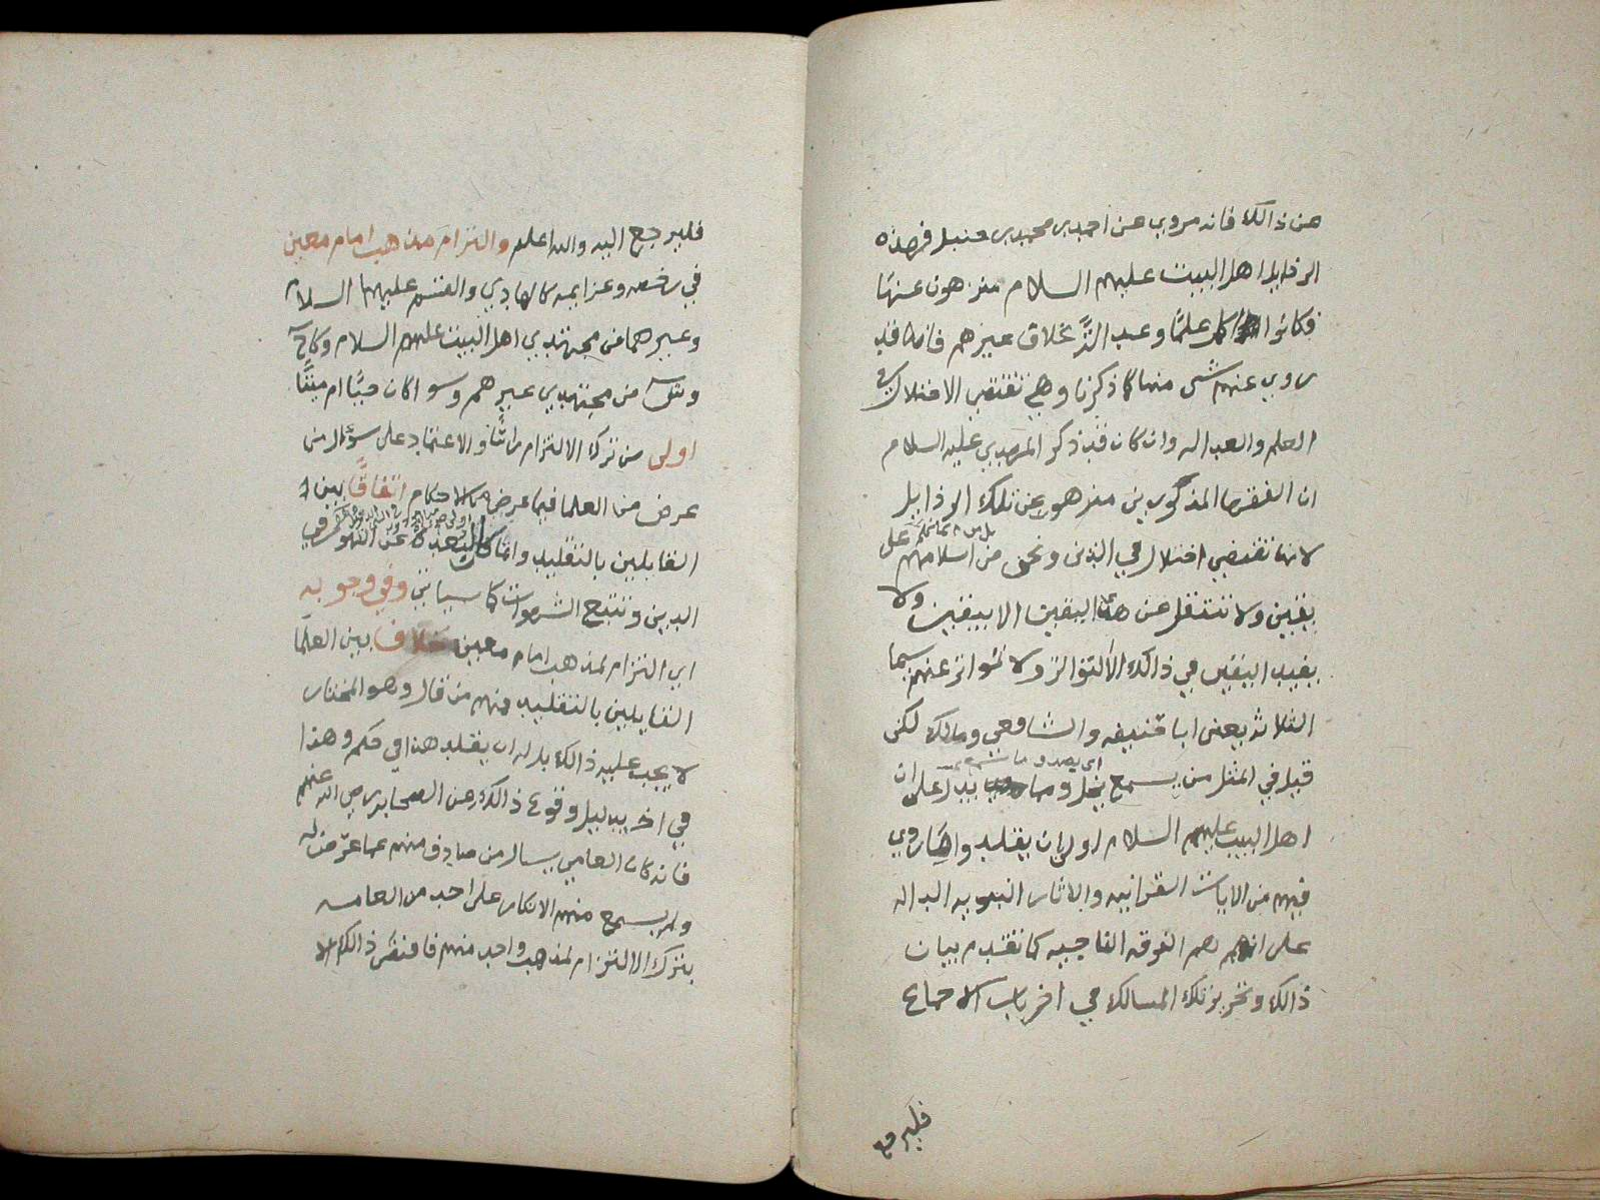 عن ذالك فانه مروي عن احمد بن محمد بن حنبل فهذه
الرذايل اهل البيت عليهم السلام منزهون عنها
فكانوا اكمل علمًا وعدالةً بخلاف غيرهم فانه قد
روي عنهم شي منها كما ذكرنا وهي تقتضي الاختلال في
العلم والعداله وان كان قد ذكر المهدي عليه السلام
ان الفقها المذكورين منزهون عن تلك الرذايل
لانها تقتضي اختلال في الدين ونحن من اسلامهم على
يقين ولا ننتقل عن هذا اليقين الا بيقين ولا
يفيد اليقين في ذالك الا التواتر ولا تواتر عنهم سيما
الثلاثه يعني ابا حنيفه والشافعي ومالك لكن
اي يصدق ما سمع
قيل في المثل من يسمع يخل وما بدل على ان
اهل البيت عليهم السلام اولى ان يقلدوا ما روي
فيهم من الايات القرانيه والاثار النبويه الداله
على انهم هم الفرقه الناجيه كما تقدم بيان
ذالك وتحرير تلك المسالك في اخر باب الاجماع
فليرجع
فليرجع اليه والله اعلم والتزام مذهب امام معين
في رخصه وعزايمه كالهادي والقسم عليهما السلام
وغيرهما من مجتهدي اهل البيت عليهم السلام وكاح
وش من مجتهدي غيرهم وسوا كان حيًّا ام ميتًا
اولى من ترك الالتزام راسًا والاعتماد على سؤال من
عرض من العلما فيما عرض من الاحكام اتفاقًا بين
القايلين بالتقليد وانما كان لبعده عن التهور في
الدين وتتبع الشهوات كما سياتي وفي وجوبه
اي التزام لمذهب امام معين خلاف بين العلما
القايلين بالتقليد منهم من قال وهو المختار
لا يجب عليه ذالك بل له ان يقلد هذا في حكم وهذا
في اخر بدليل وقوع ذالك من الصحابه رضي الله عنهم
فانه كان العامي يسال من صادف منهم عما عرض له
ولم يسمع منهم الانكار على احد من العامه
بترك الالتزام لمذهب واحد منهم فاقتضى ذالك الا